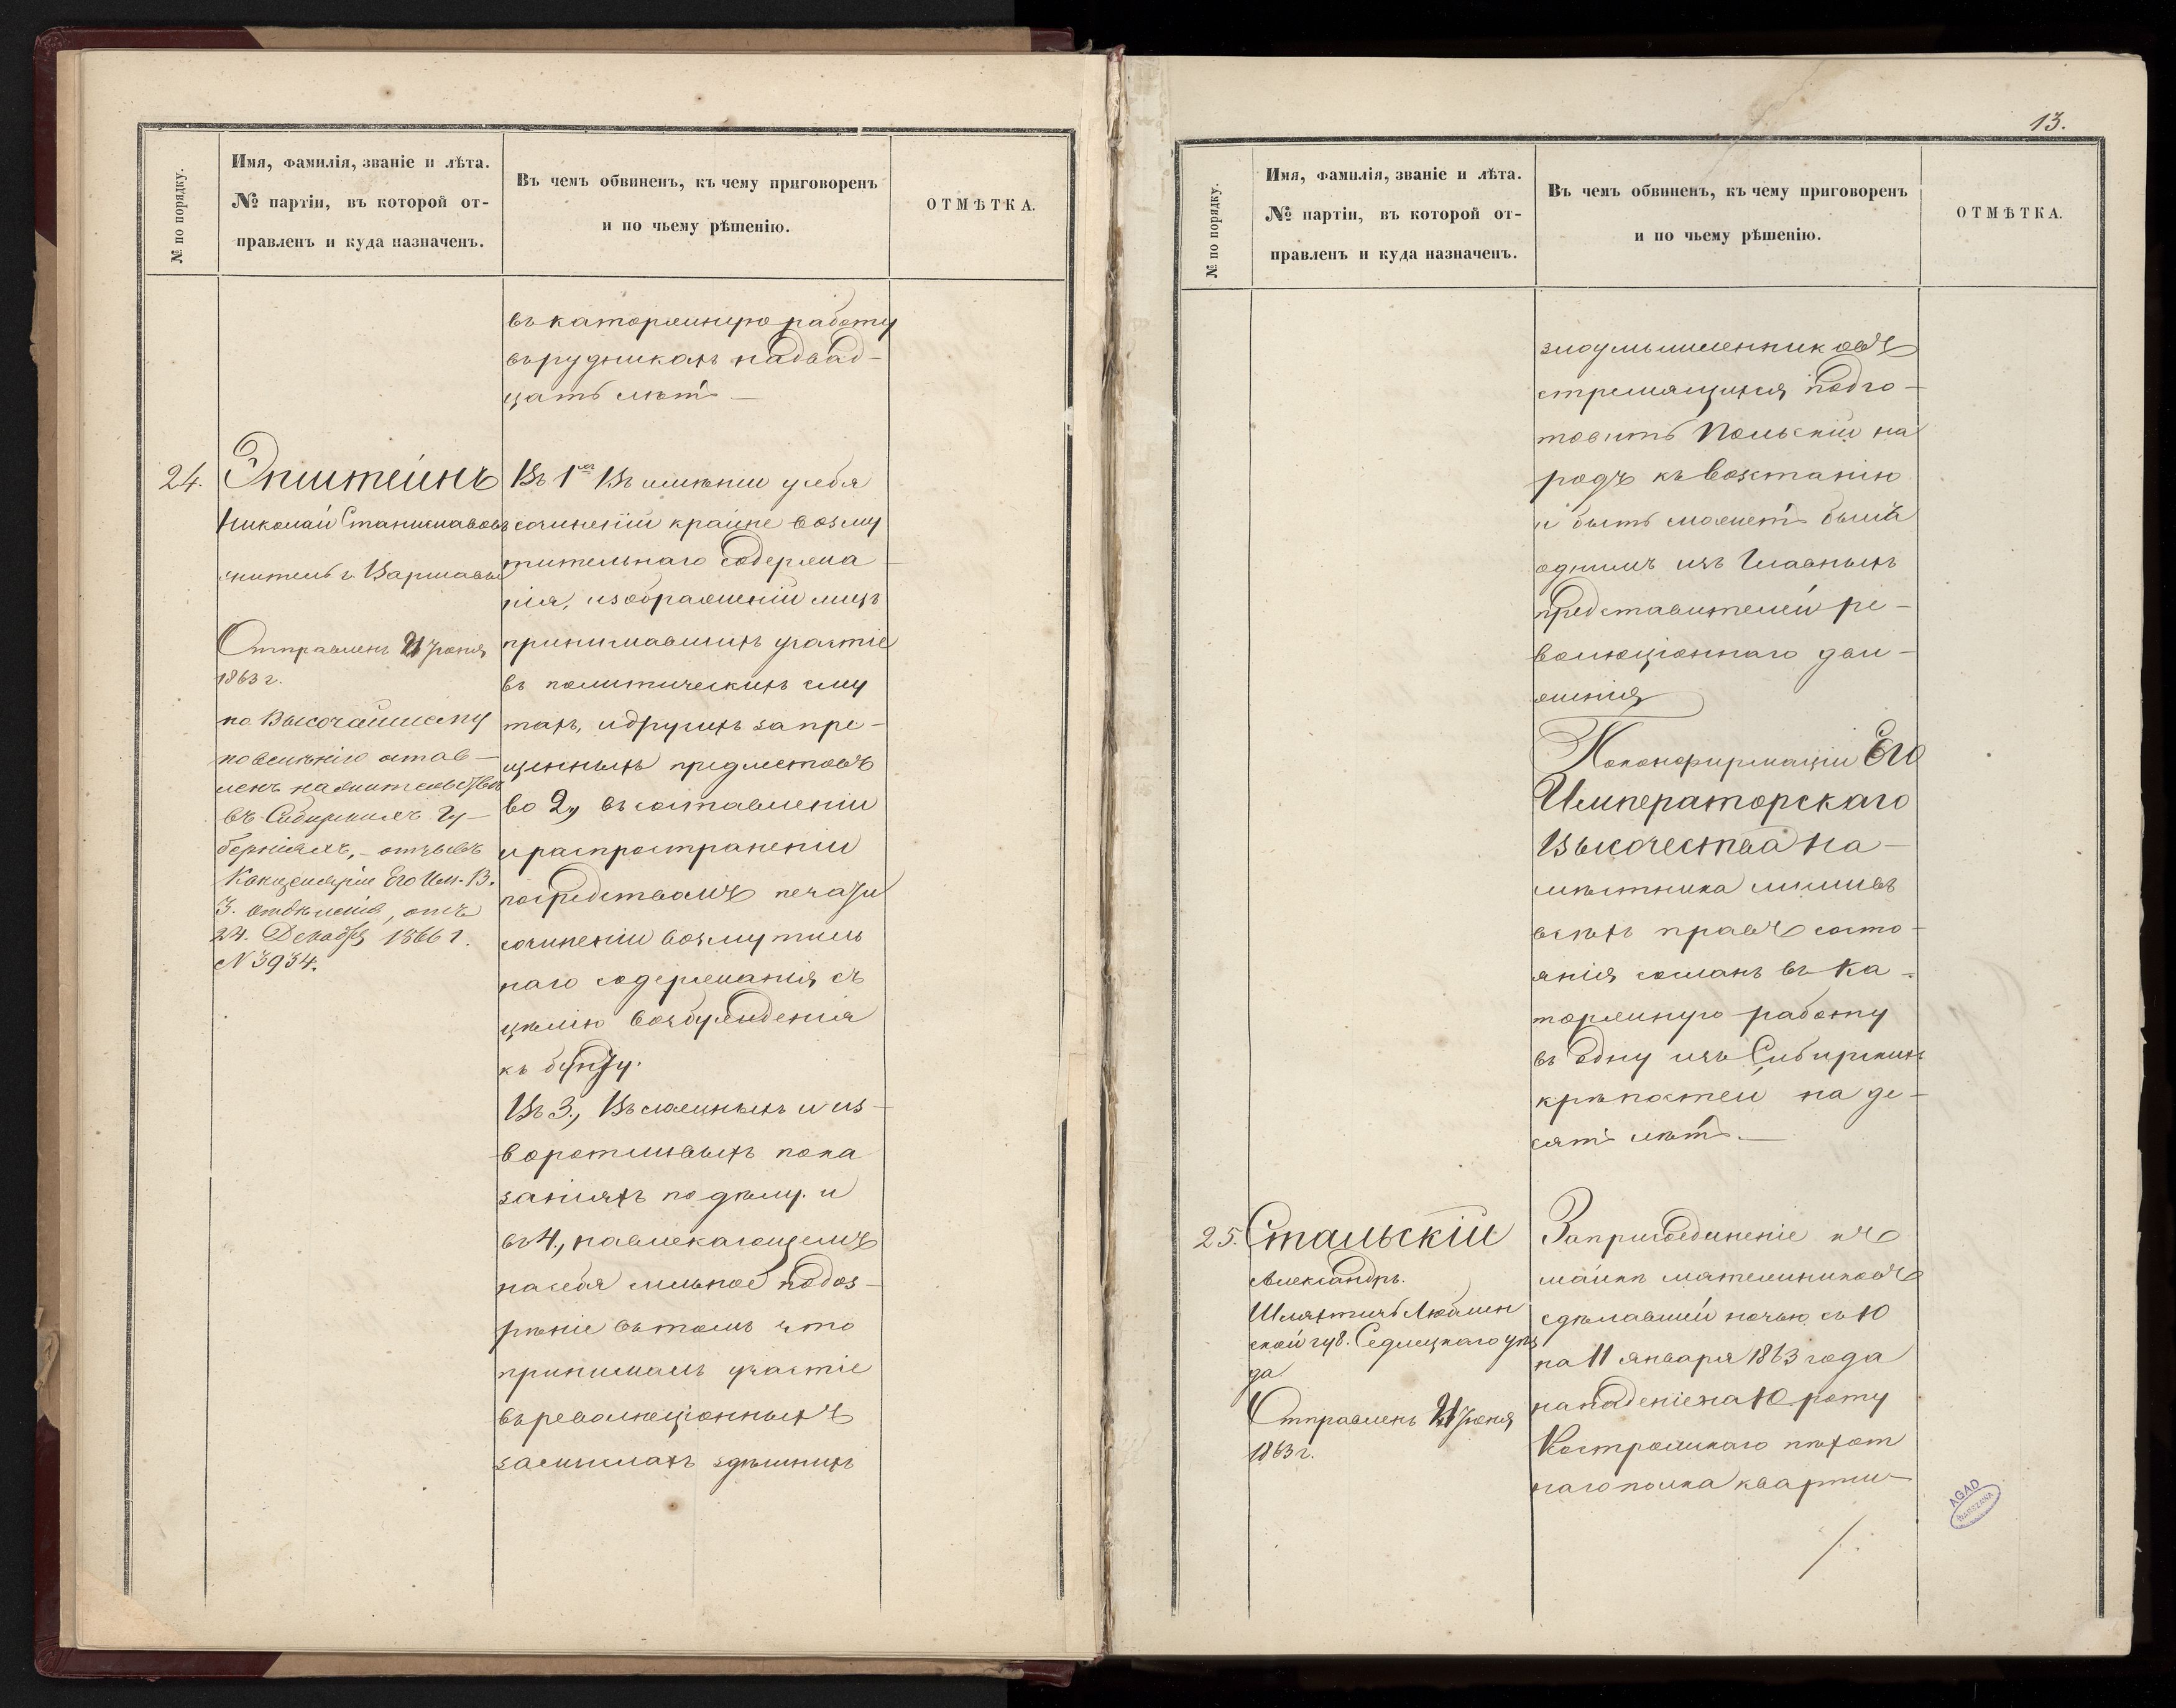 № по порядку.
Имя, фамилія, званіе и лѣта.
№ партіи, въ которой от-
правленъ и куда назначенъ.
Въ чемъ обвиненъ, къ чему приговоренъ
и по чьему рѣшенію.
ОТМѢТКА.
въ каторжную работу
въ рудникахъ на двад-
цать лѣтъ —
24.
Эпштейнъ
Николай Станиславовъ
житель г. Варшавы
Отправленъ 21 Іюня
1863 г.
по Высочайшему
повелѣнію остав-
ленъ на жительство
въ Сибирскихъ Гу-
берніяхъ, - отзывъ
Канцеляріи Его Им. В.
3. отдѣленія, отъ
24. Декабря 1866 г.
N 3934.
Въ 1хъ Въ имѣніи у себя
сочиненій крайне возму
тительнаго содержа
нія, изображеній лицъ
принимавшихъ участіе
въ политическихъ сму
тахъ, и другихъ запре-
щенныхъ предметовъ
во 2, въ составленіи
и распространеніи
посредствомъ печати
сочиненій возмутитель
наго содержанія съ
цѣлію возбужденія
къ бунту.
Въ 3., Въ ложныхъ и из-
воротливыхъ пока
заніяхъ по дѣлу. и
въ 4., навлекающемъ
на себя сильное подоз-
рѣніе въ томъ что
принималъ участіе
въ революціонныхъ
замыслахъ здѣшнихъ
13.
№ по порядку.
Имя, фамилія, званіе и лѣта.
№ партіи, въ которой от-
правленъ и куда назначенъ.
Въ чемъ обвиненъ, къ чему приговоренъ
и по чьему рѣшенію.
ОТМѢТКА.
злоумышленниковъ
стремящихся подго-
товить Польскій на
родъ къ возстанію
и быть можетъ былъ
однимъ изъ Главныхъ
представителей ре-
волюціоннаго дви-
женія
По конфирмаціи Его
Императорскаго
Высочества На-
мѣстника лишивъ
всѣхъ правъ состо-
янія сосланъ въ Ка-
торжную работу
въ одну изъ Сибирскихъ
крѣпостей на де-
сять лѣтъ. —
25.
Стальскій
Александръ.
Шляхтичъ Люблин
ской губ. Седлецкаго уѣз
да.
Отправленъ 21 Іюня
1863 г.
За присоединеніе къ
шайкѣ мятежниковъ
сдѣлавшей ночью съ 10
на 11 января 1863 года
нападеніе на 10 роту
Костромскаго пѣхот
наго полка кварти-
/.
AGAD
WARSZAWA